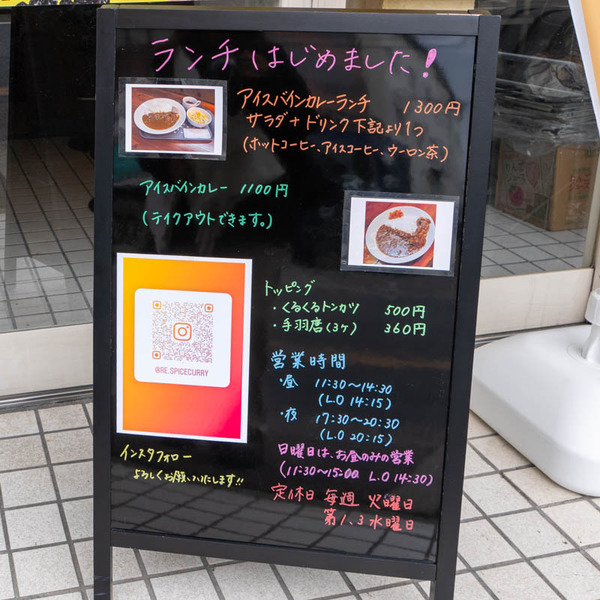 ランチはじめました!
アイスバインカレーランチ 1300円
サラダ+ドリンク下記より1つ
(ホットコーヒー、アイスコーヒー、ウーロン茶)
アイスバインカレー 1100円
(テイクアウトできます。)
トッピング
・くるくるトンカツ 500円
・手羽唐(3ヶ) 360円
@RE.SPICECURRY
営業時間
・昼 11:30〜14:30
(L.O 14:15)
・夜 17:30〜20:30
(L.O 20:15)
インスタフォロー
よろしくお願いいたします!!
日曜日は、お昼のみの営業
(11:30〜15:00 L.O 14:30)
定休日 毎週 火曜日
第1、3水曜日